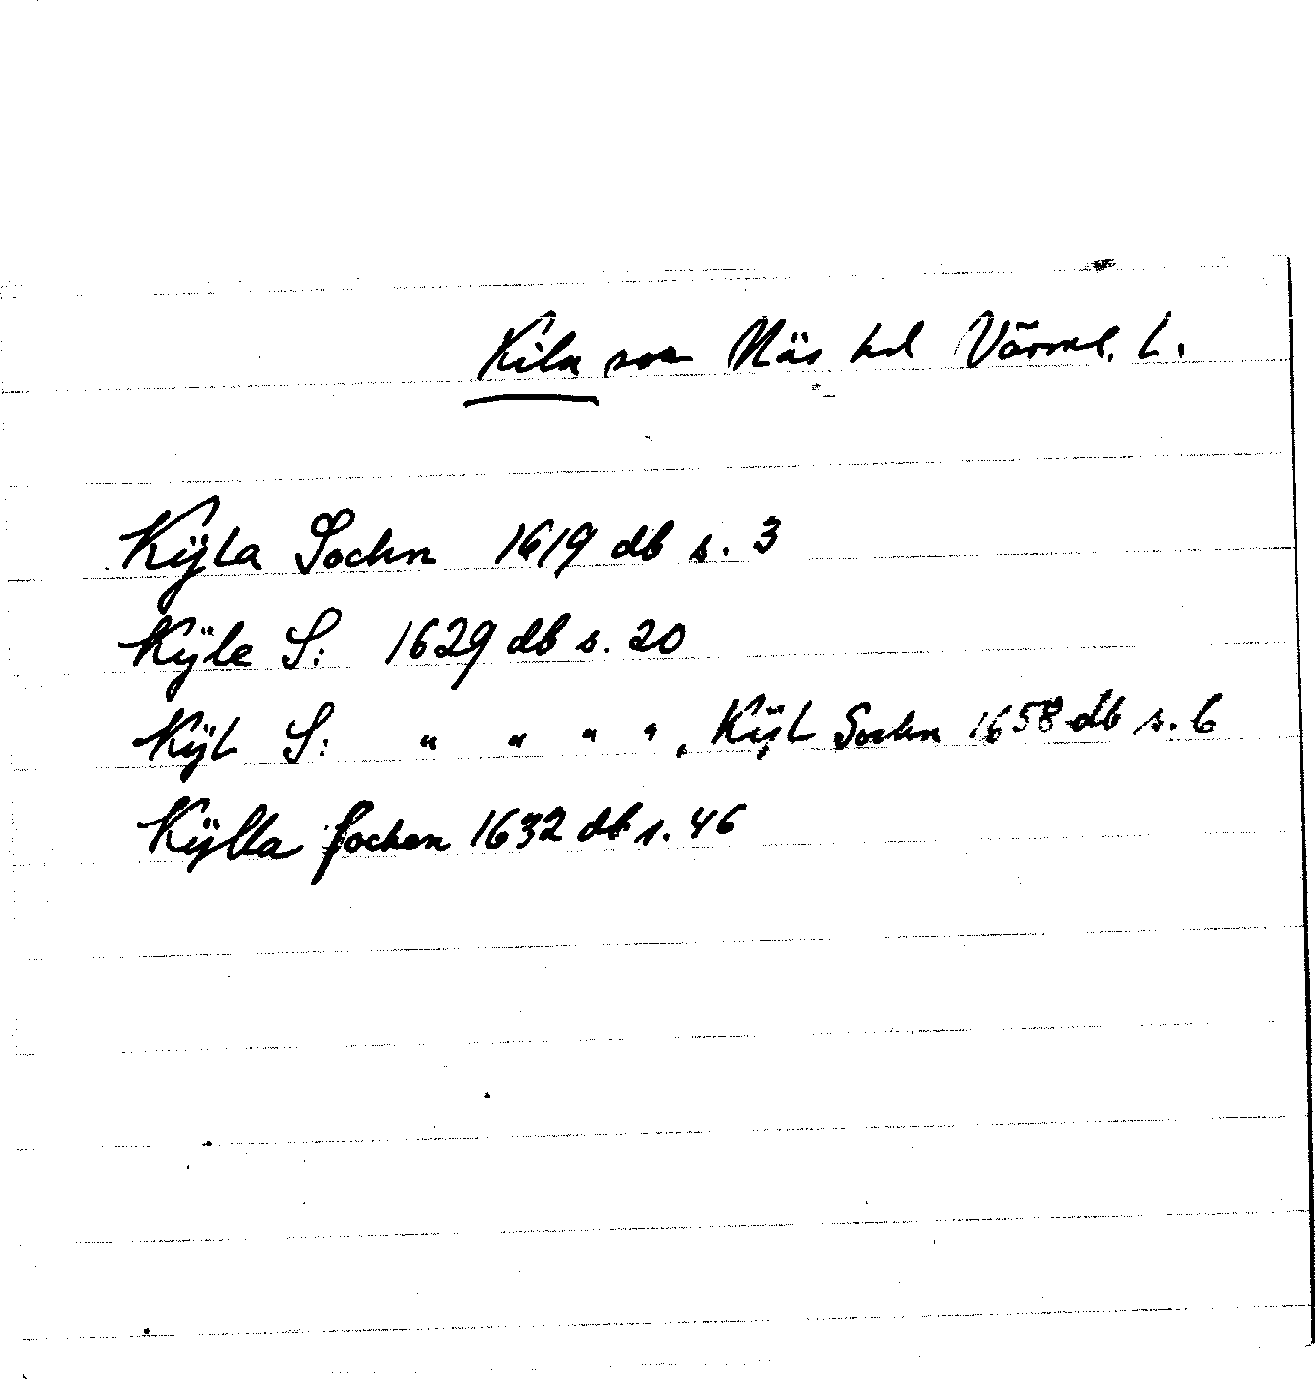 Kila sn Näs hd Värml. L.
Kÿla Sochn 1619 db s. 3
Kÿle S: 1629 db s. 20
Kÿl S: " " " ", Kÿl Sochn 1658 db s. 6
Kÿlla Sochen 1632 db s. 46